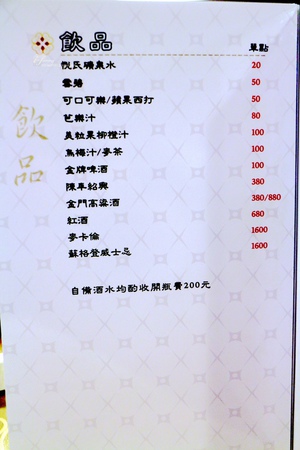 飲品
單點
悅氏礦泉水 20
雪碧 50
可口可樂/蘋果西打 50
芭樂汁 80
美粒果柳橙汁 100
烏梅汁/麥茶 100
金牌啤酒 100
陳年紹興 380
金門高粱酒 380/880
紅酒 680
麥卡倫 1600
蘇格登威士忌 1600
自備酒水均酌收開瓶費200元
飲品